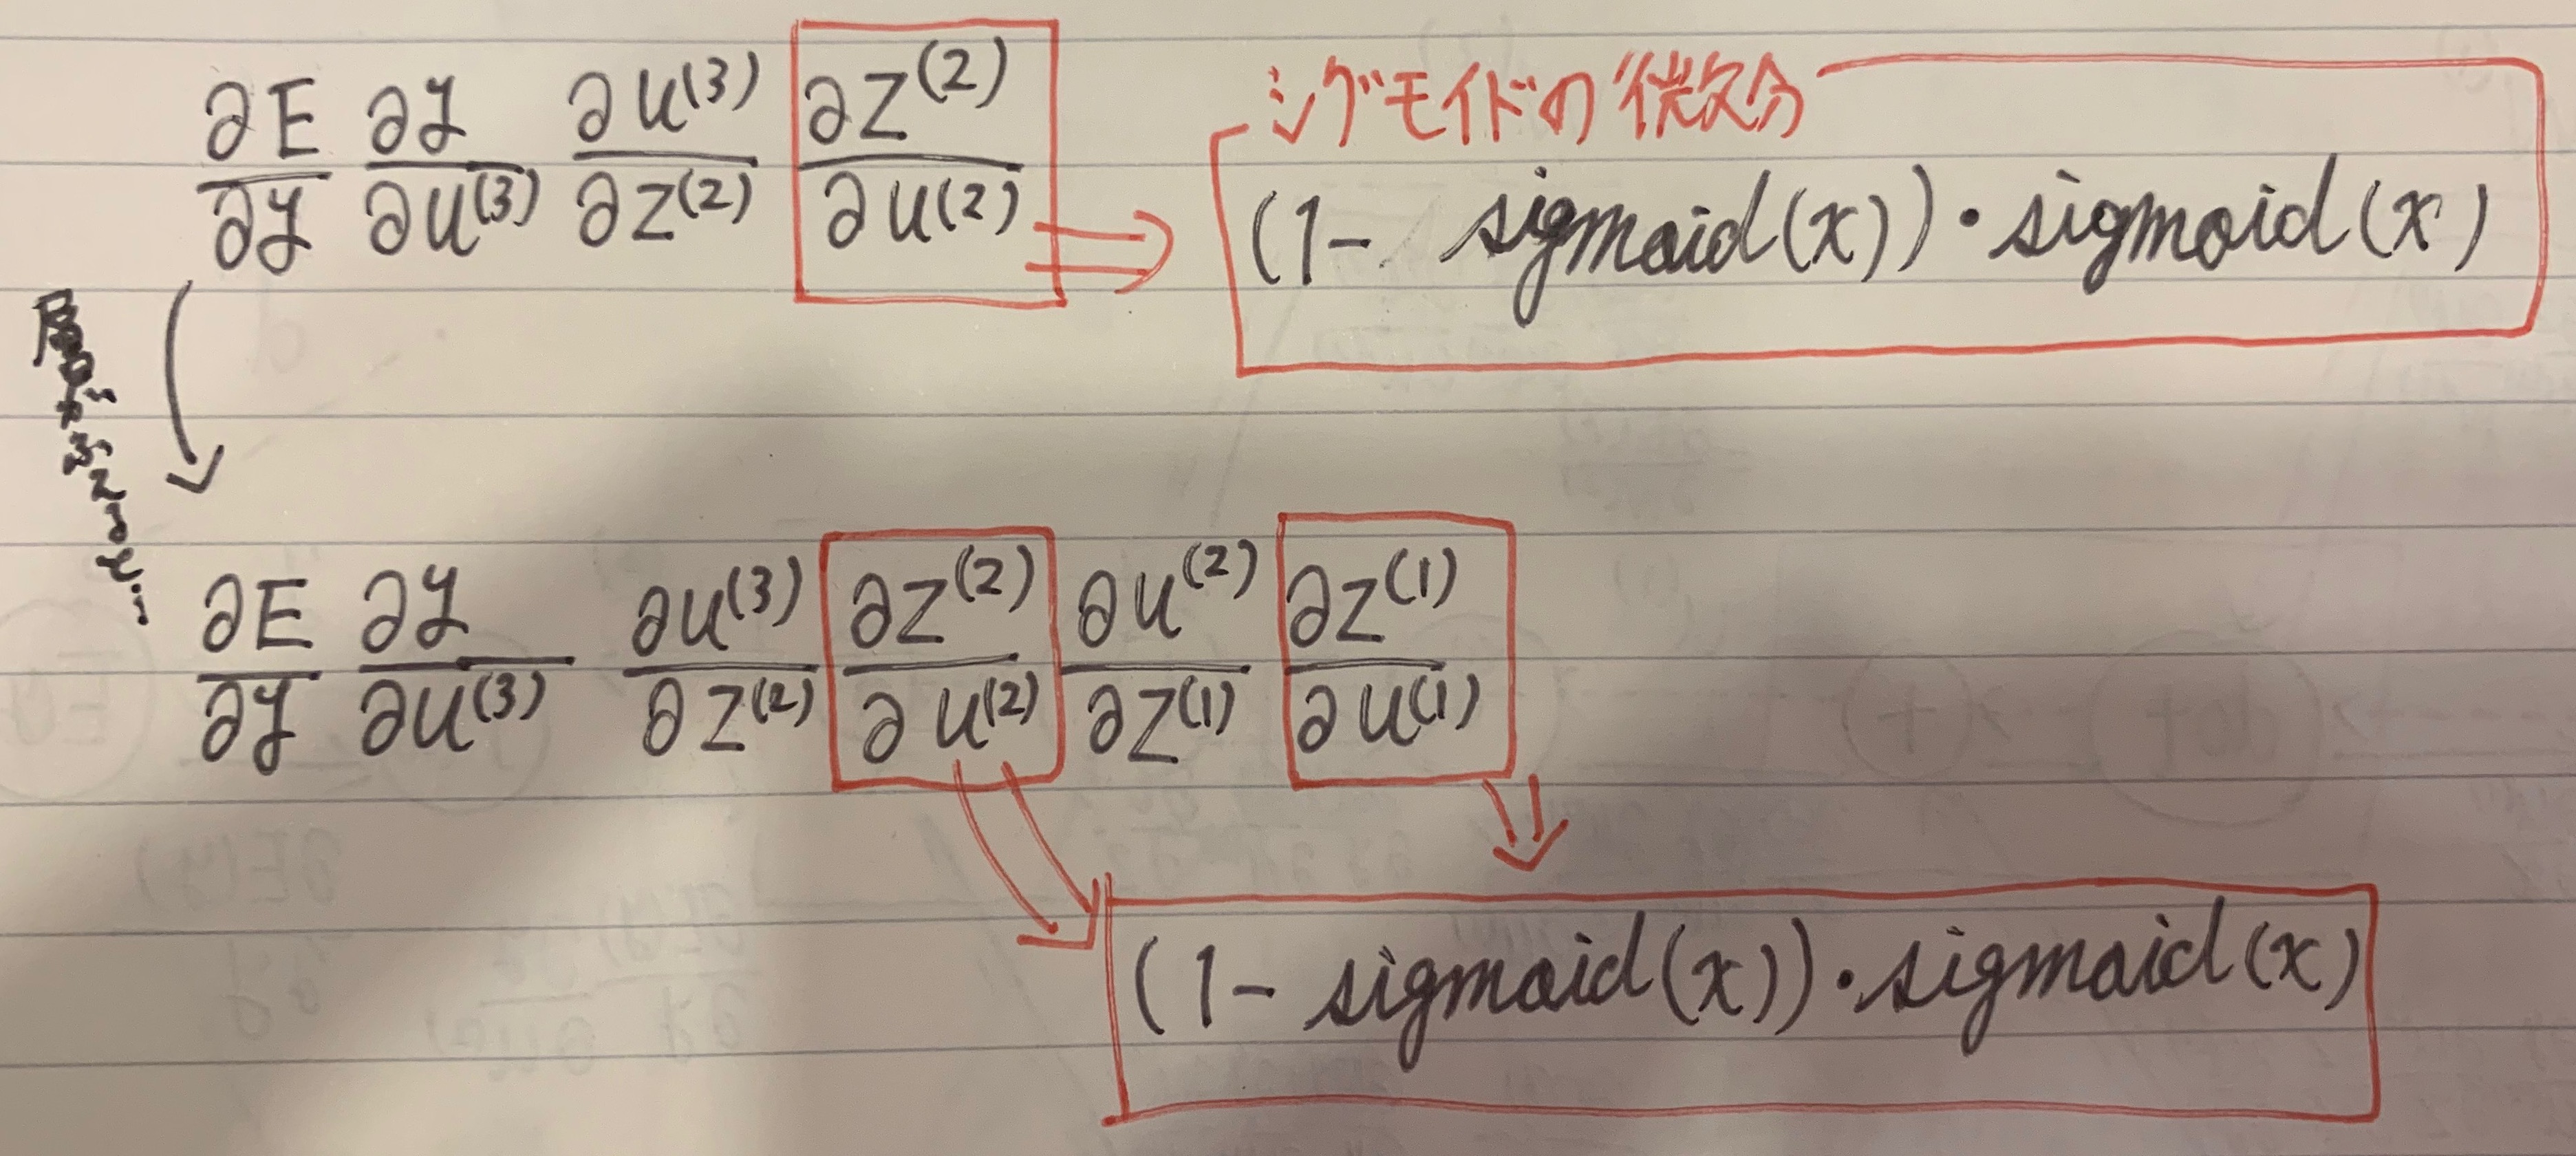 ∂E/∂y ∂y/∂u⁽³⁾ ∂u⁽³⁾/∂z⁽²⁾ ∂z⁽²⁾/∂u⁽²⁾
シグモイドの微分
(1- sigmoid(x))・sigmoid(x)
層がふえると...
∂E/∂y ∂y/∂u⁽³⁾ ∂u⁽³⁾/∂z⁽²⁾ ∂z⁽²⁾/∂u⁽²⁾ ∂u⁽²⁾/∂z⁽¹⁾ ∂z⁽¹⁾/∂u⁽¹⁾
(1- sigmoid(x))・sigmoid(x)